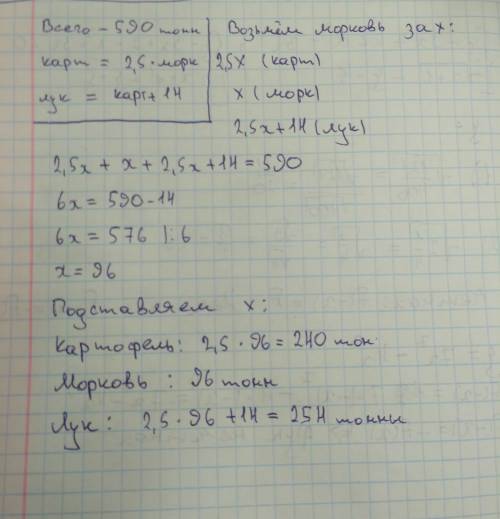 Всего - 590 тонн
карт = 2,5 · морк
лук = карт + 14
Возьмём морковь за х:
2,5х (карт)
х (морк)
2,5х + 14 (лук)
2,5х + х + 2,5х + 14 = 590
6х = 590 - 14
6х = 576 |: 6
х = 96
Подставляем х:
Картофель: 2,5 · 96 = 240 тон
Морковь : 96 тонн
Лук : 2,5 · 96 + 14 = 254 тонны